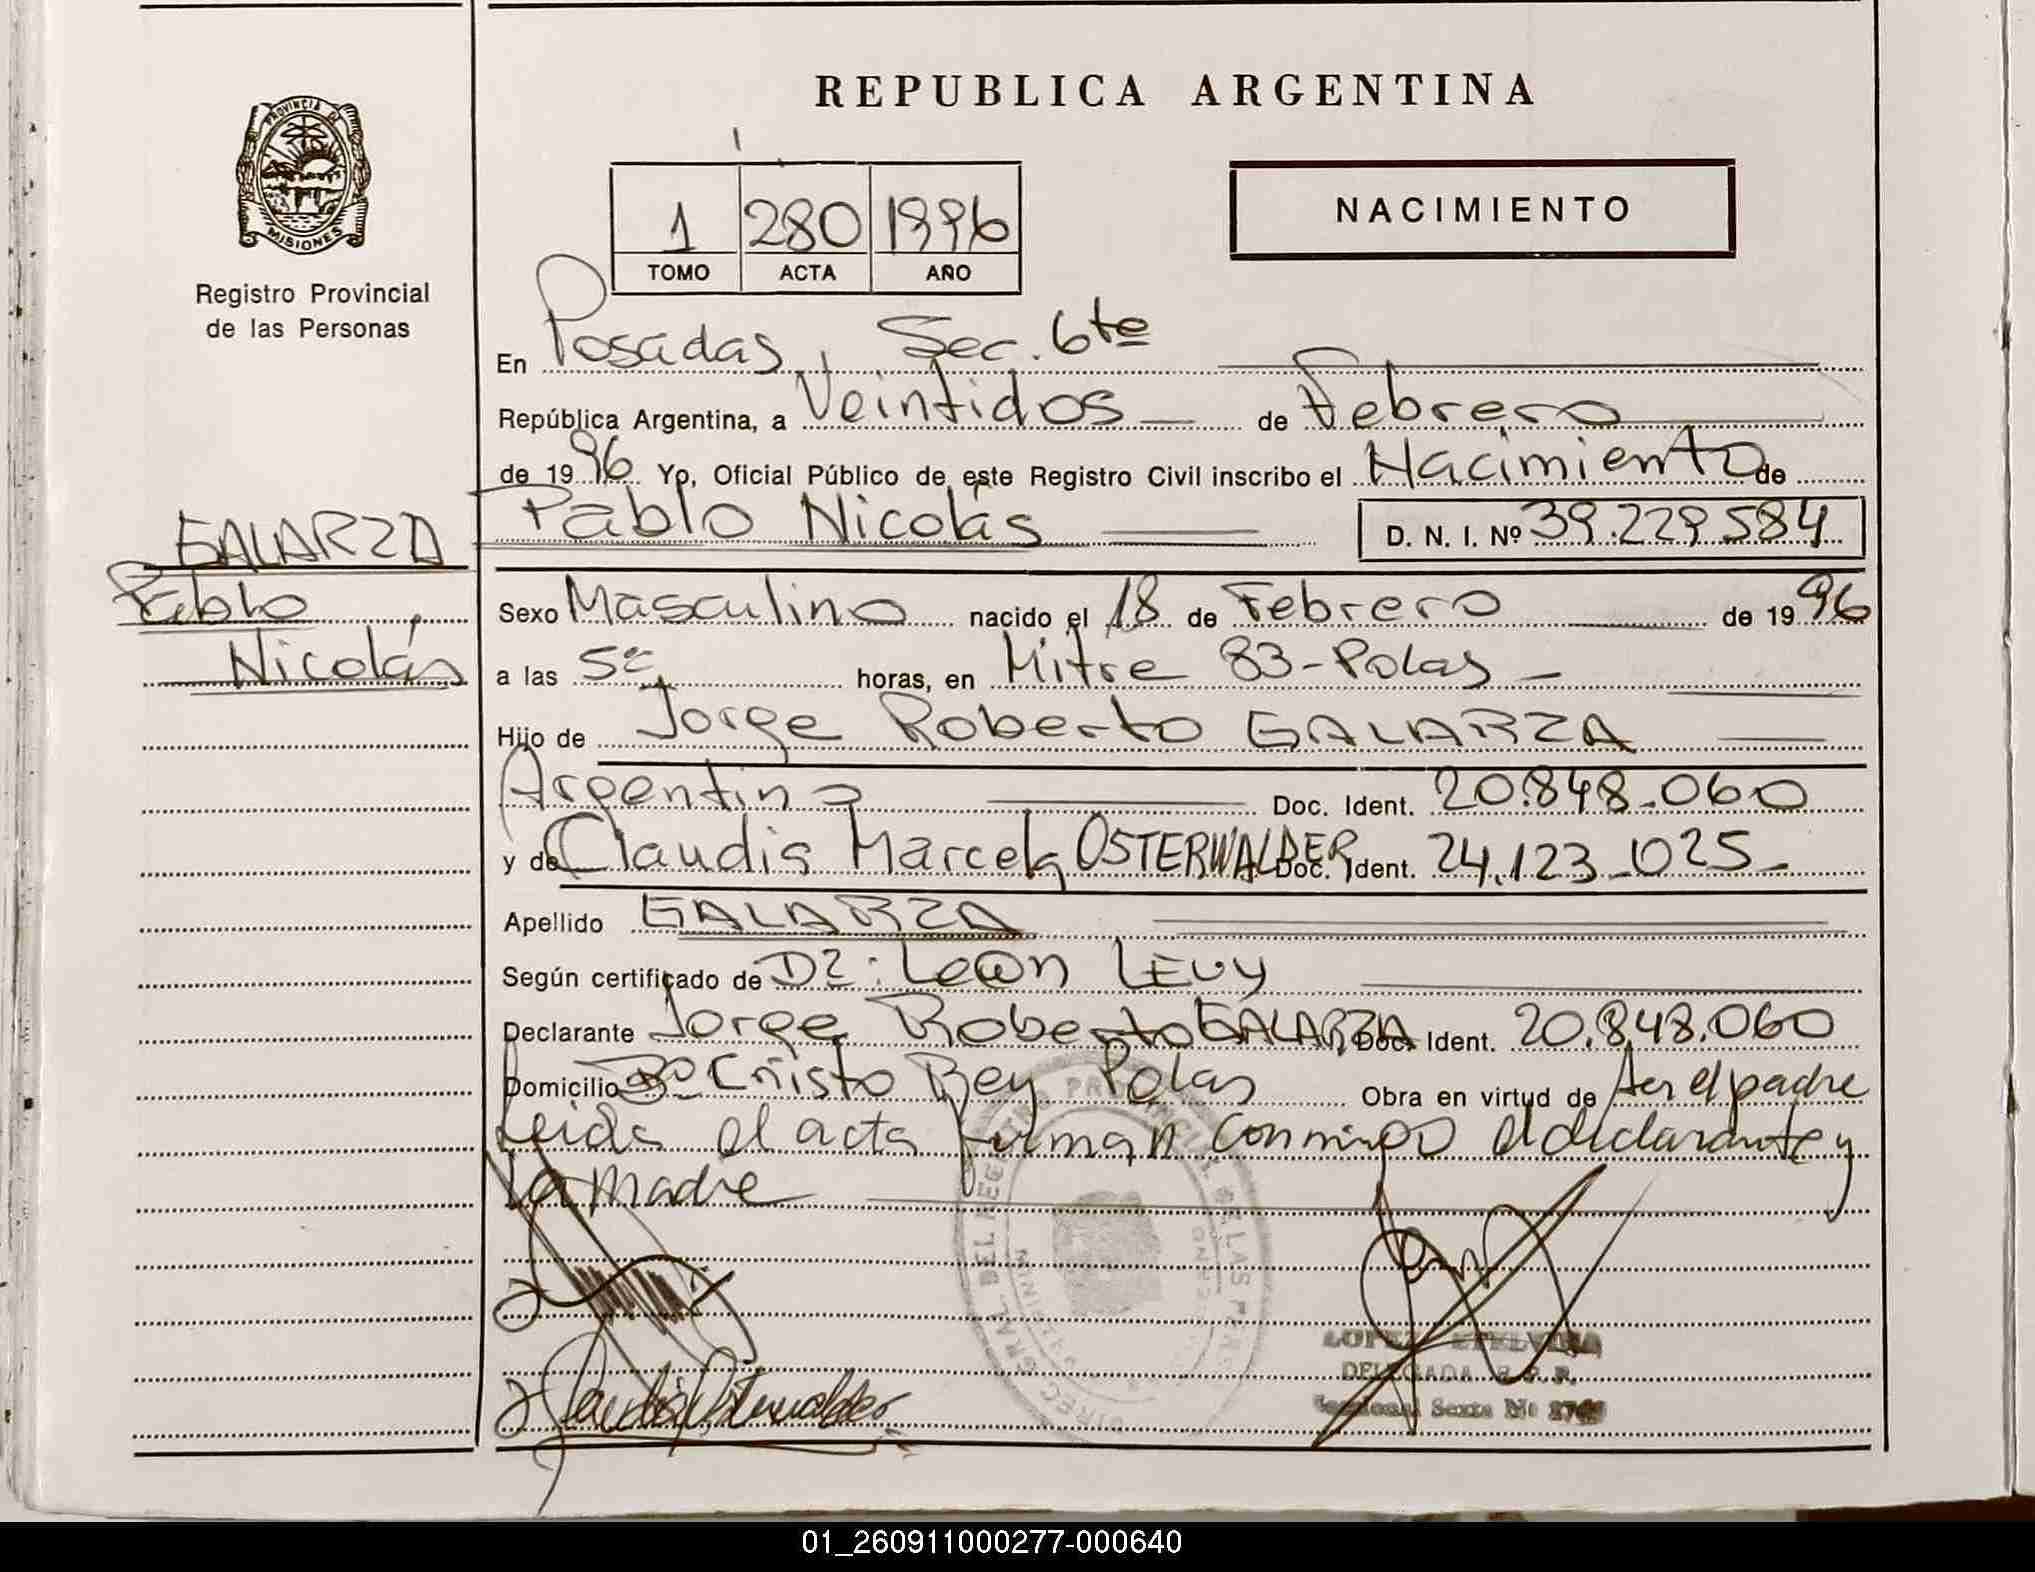 REPUBLICA ARGENTINA
PROVINCIA DE
MISIONES
Registro Provincial
de las Personas
1 280 1996
TOMO ACTA AÑO
NACIMIENTO
En Posadas, Sec. 6ta
República Argentina, a Veintidos de Febrero
de 1996 Yo, Oficial Público de este Registro Civil inscribo el Nacimiento de
GALARZA
Pablo
Nicolás
Pablo Nicolás D. N. I. Nº 39.229.584
Sexo Masculino nacido el 18 de Febrero de 1996
a las 5 horas, en Mitre 83-Pdas
Hijo de Jorge Roberto GALARZA
Argentino Doc. Ident. 20.848.060
y de Claudia Marcela OSTERWALDER Doc. Ident. 24.123.025
Apellido GALARZA
Según certificado de Dr: León LEVY
Declarante Jorge Roberto GALARZA Doc. Ident. 20.848.060
Domicilio Bº Cristo Rey Pdas Obra en virtud de ser el padre
Leida el acta firman conmigo el declarante y
la madre
LOPEZ ETELVINA
DELEGADA R. P. P.
Seccional Sexta Nº
01_260911000277-000640